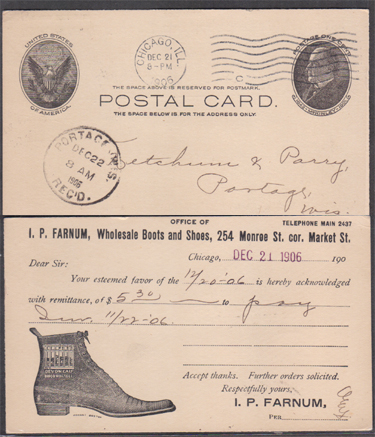 UNITED STATES
OF AMERICA
CHICAGO, ILL.
DEC 21
8-PM
1906
C
POSTAGE ONE CENT
THE SPACE ABOVE IS RESERVED FOR POSTMARK.
POSTAL CARD.
THE SPACE BELOW IS FOR THE ADDRESS ONLY.
PORTAGE, WIS.
DEC 22
8 AM
1906
REC'D.
Ketchum & Parry,
Portage,
Wis.
OFFICE OF
TELEPHONE MAIN 2437
I. P. FARNUM, Wholesale Boots and Shoes, 254 Monroe St. cor. Market St.
Chicago, DEC 21 1906 190
Dear Sir:
Your esteemed favor of the 12/20-06 is hereby acknowledged
with remittance, of $ 5 30 to pay
Inv. 11/22-06.
Accept thanks. Further orders solicited.
Respectfully yours,
I. P. FARNUM,
PER